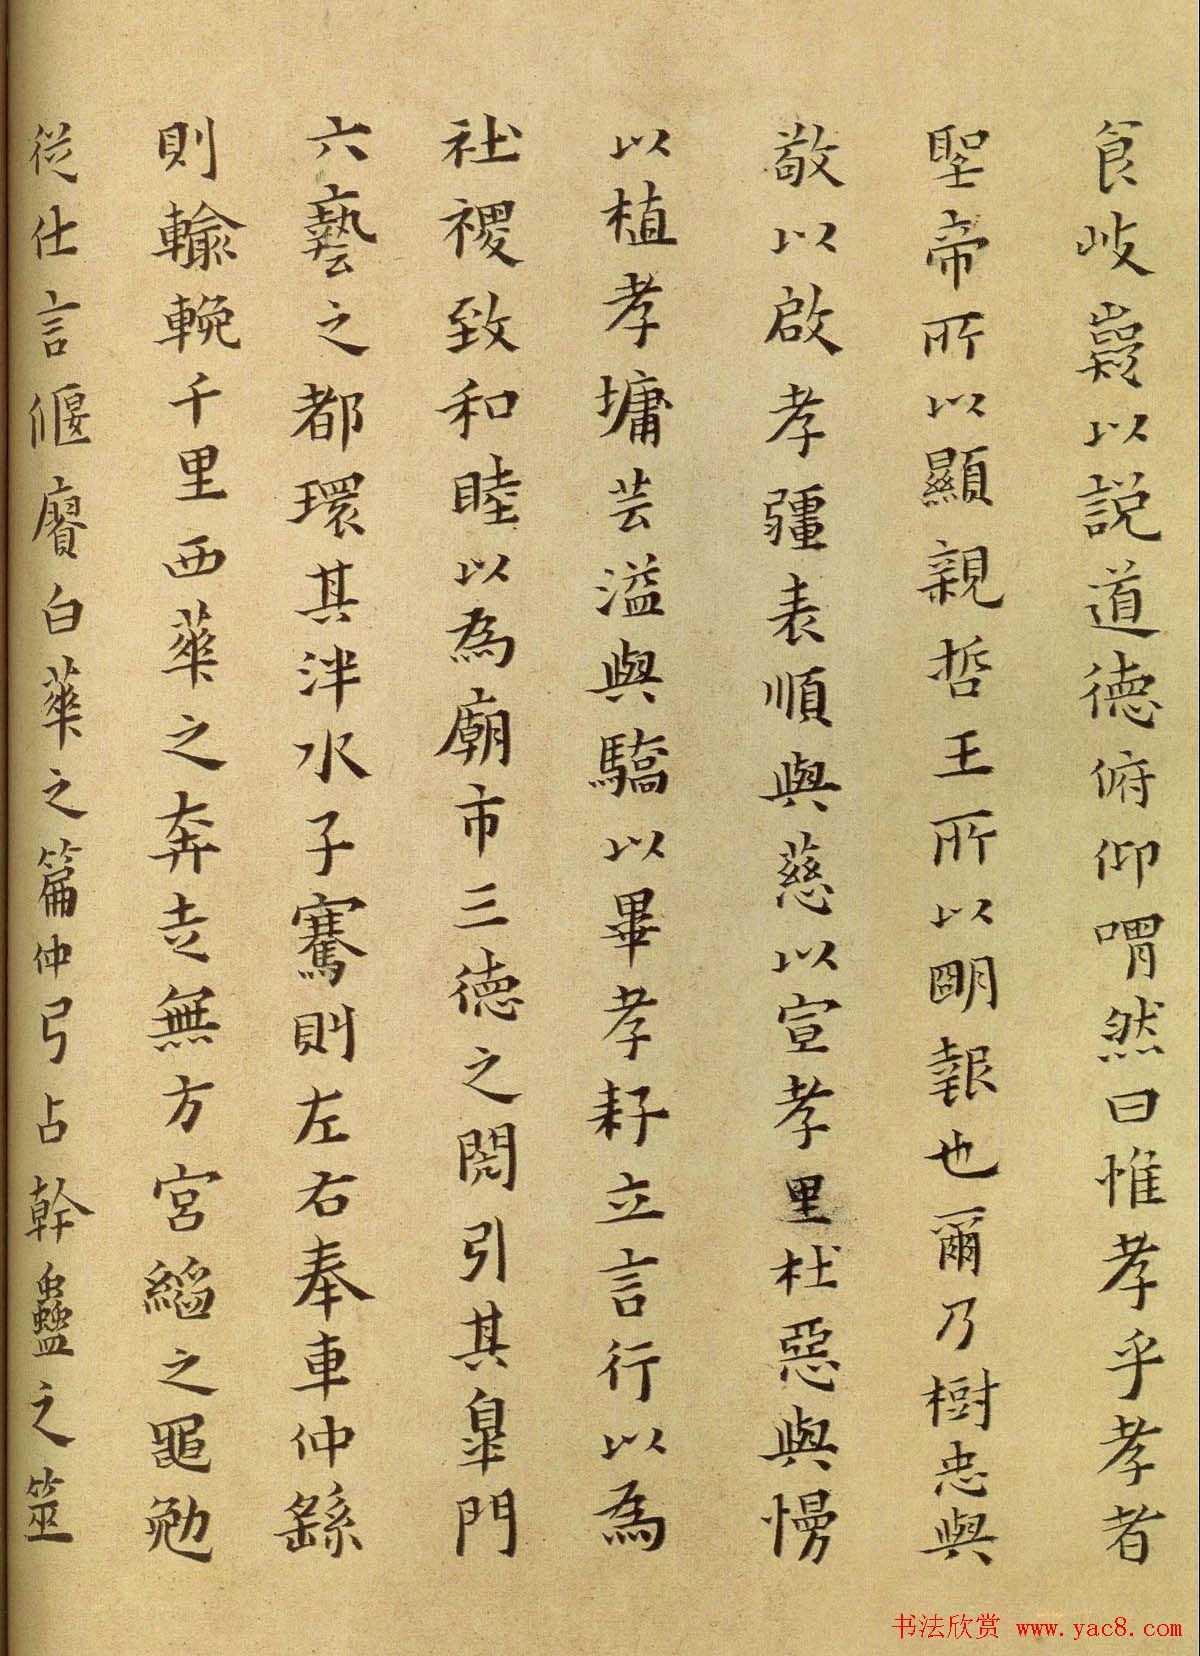 食岐嶷以説道德俯仰喟然曰惟孝乎孝者
聖帝所以顯親哲王所以明報也爾乃樹忠與
敬以啟孝疆表順與慈以宣孝里杜惡與慢
以植孝墉芸溢與驕以畢孝耔立言行以為
社稷致和睦以為廟市三德之閌引其皐門
六藝之都環其泮水子騫則左右奉車仲繇
則輸輓千里西華之奔走無方宮縚之黽勉
從仕言偃賡白華之篇仲弓占幹蠱之筮
书法欣赏 www.yac8.com